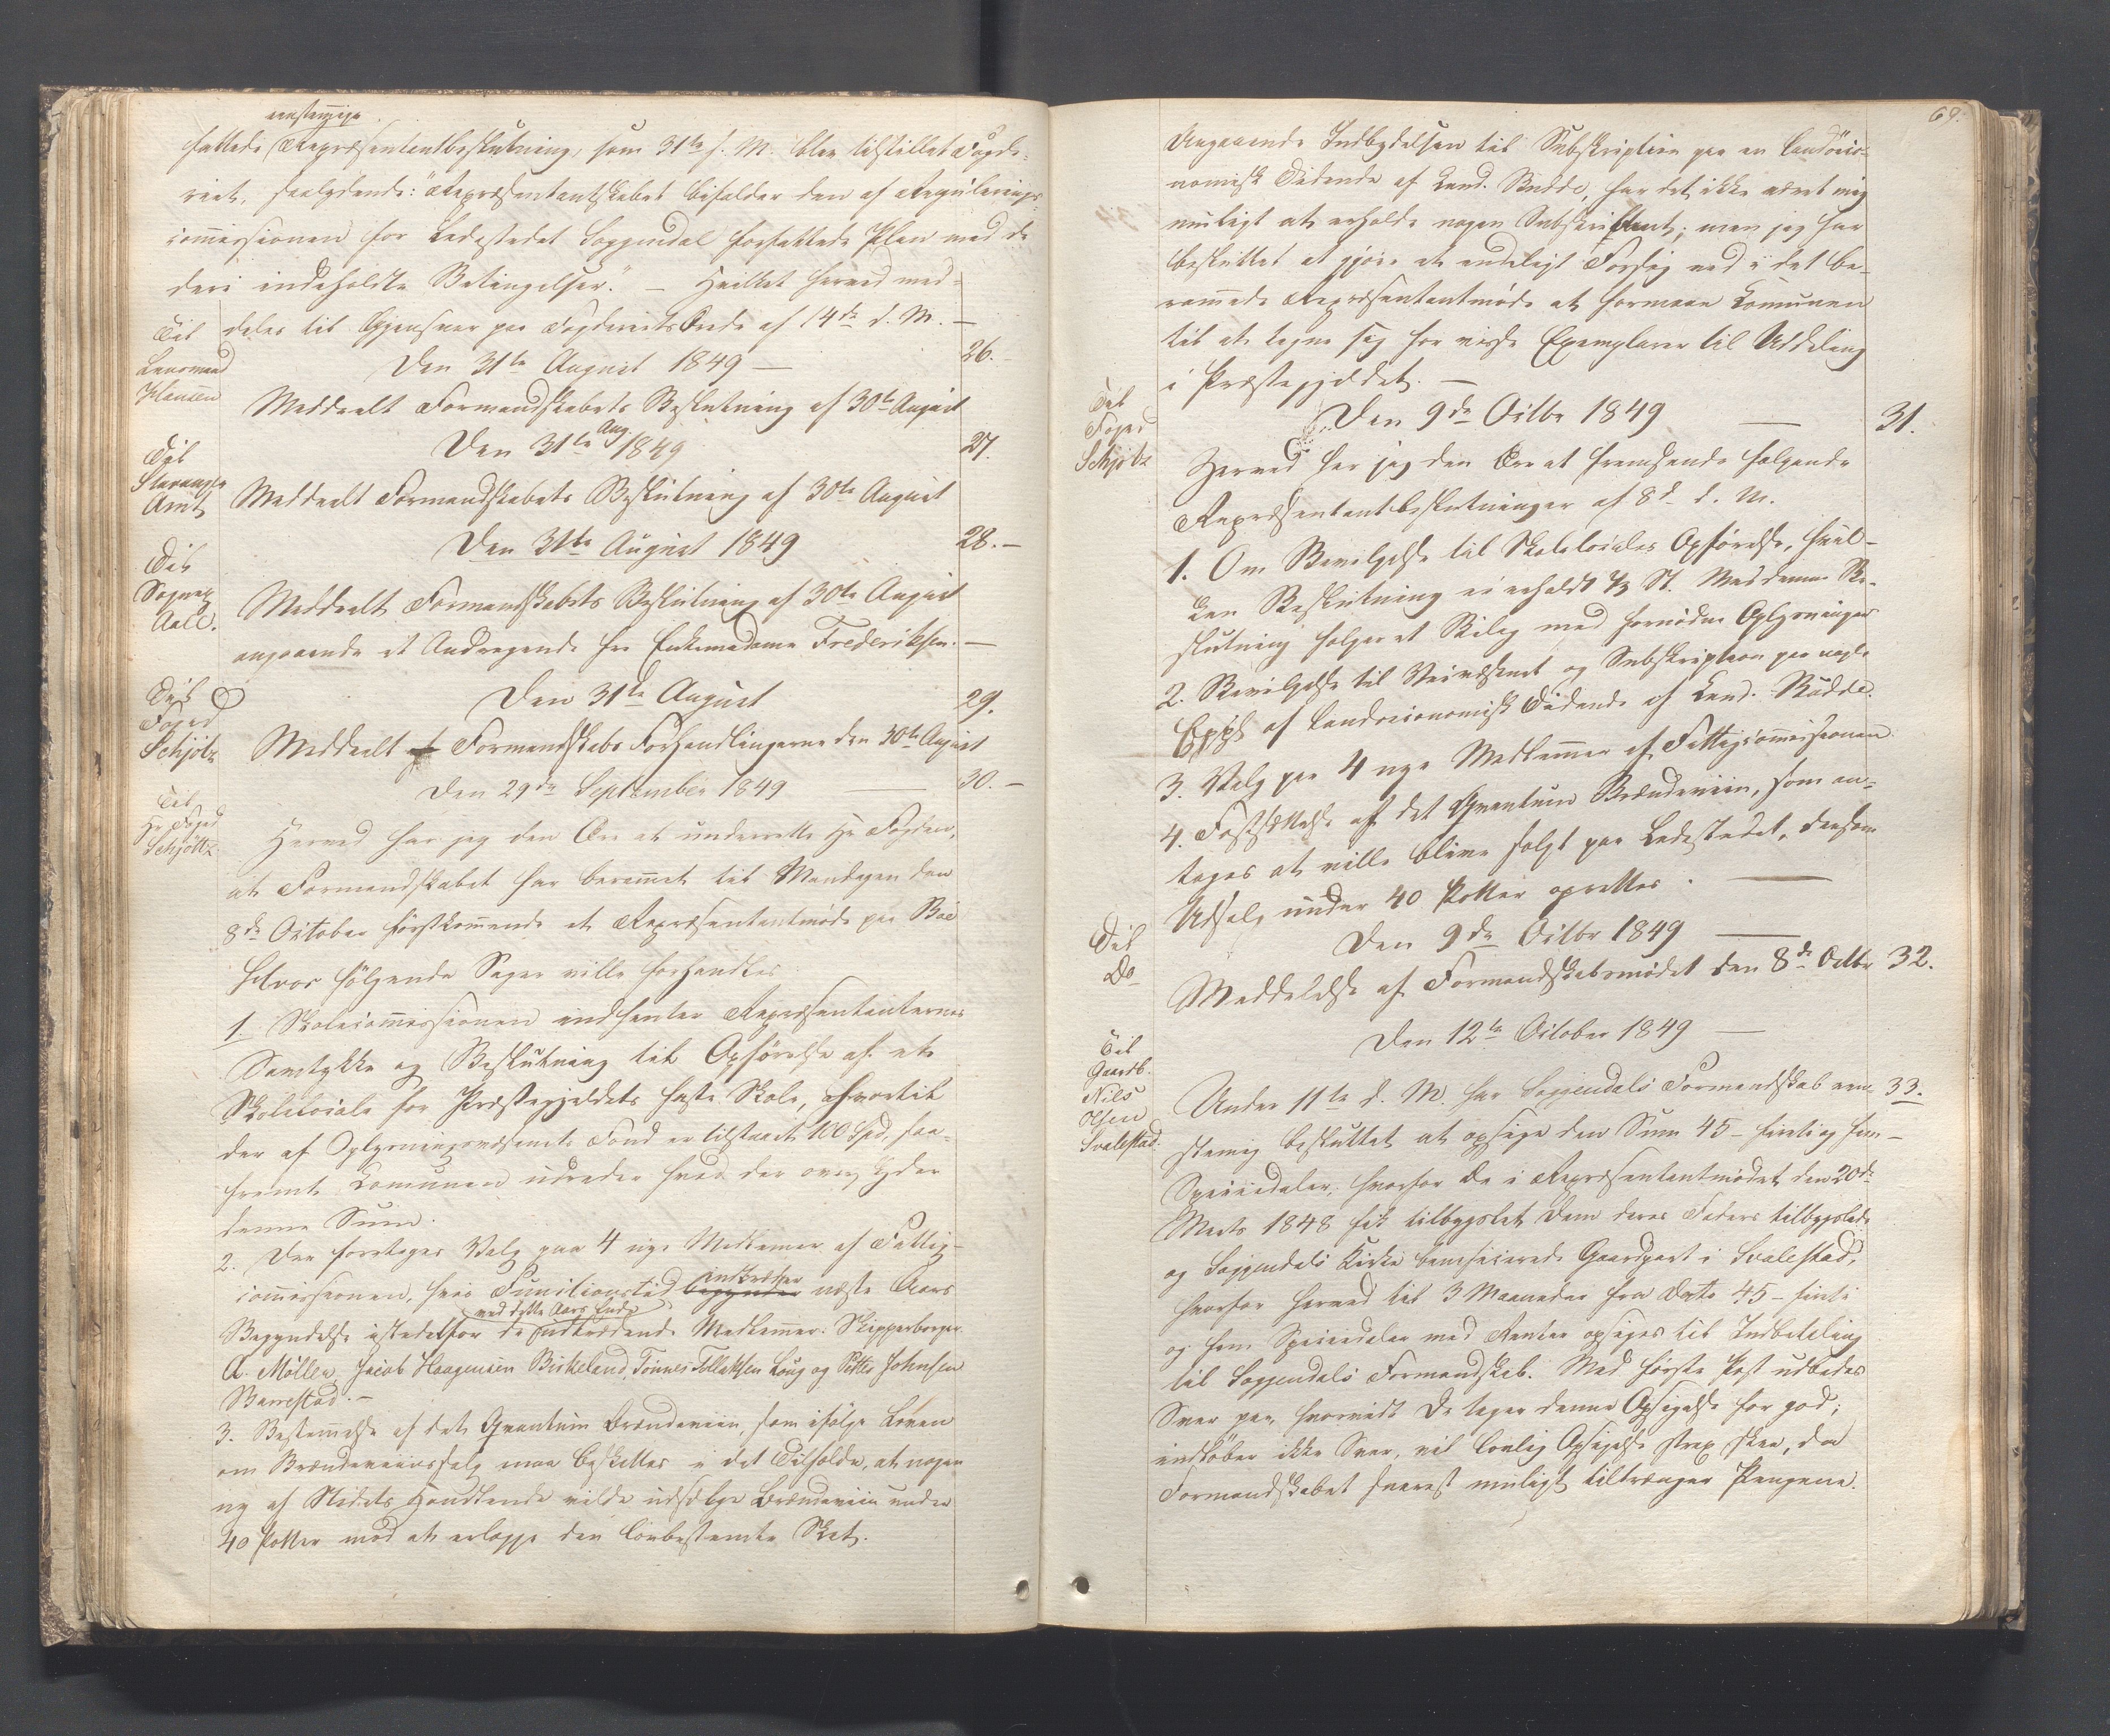 eenstemmige
fattede Repræsentantbeslutning, som 31te f. M. blev tilstillet Fogde-
riet, saalydende: "Repræsentantskabet bifalder den af Regulerings-
commissionen for Ladestedet Soggendal forfattede Plan med de
deri indeholdte Betingelser." — Hvilket herved med-
deles til Gjensvar paa Fogderiets Brev af 14de d. M. —
Til
Lensmand
Klausen
Den 31te August 1849 —
26.
Meddeelt Formandskabets Beslutning af 30te August
Til
Stavanger
Amt
Den 31te Aug. 1849
27.
Meddeelt Formandskabets Beslutning af 30te August
Til
Sognepr
Aall.
Den 31te August 1849
28. —
Meddeelt Formandskabets Beslutning af 30te August
angaaende et Andragende fra Enkemadame Frederiksen. —
Til
Foged
Schjötz
Den 31te August
29.
Meddeelt Formandskabs Forhandlingerne den 30te August
Til
Hr Foged
Schjöttz
Den 29de September 1849
30. —
Herved har jeg den Ære at underrette Hr Fogden,
at Formandskabet har berammet til Mandagen den
8de October førstkommende et Repræsentantmøde paa Böe
Hvor følgende Sager ville forhandles
1 Skolecommissionen indhenter Repræsentanternes
Samtykke og Beslutning til Opførelse af et
Skolelocale for Præstegjeldets faste Skole, hvortil
der af Oplysningsvæsenets Fond er tilstaaet 100 Spd, saa-
fremt Communen udreder hvad der overskyder
denne Sum.
2. Der foretages Valg paa 4 nye Medlemmer af Fattig-
commissionen, hvis Functionstid begynder indtræder næste Aars
Begyndelse istedetfor de med dette Aars Ende udtrædende Medlemmer: Skipperborger
A. Möller, Jacob Haagensen Birkeland, Tönnes Tollaksen Loug og Petter Johnsen
Barrestad. —
3. Bestemmelse af det Qvantum Brændeviin, som ifølge Loven
om Brændeviinssalg maa beskattes i det Tilfælde, at nogen
ny af Stedets Handlende vilde udsælge Brændeviin under
40 Potter mod at erlægge den lovbestemte Skat.
69.
Angaaende Indbydelsen til Subskription paa en landoeco-
nomisk Tidende af Cand. Budde, har det ikke været mig
muligt at erholde nogen Subskribent; men jeg har
besluttet at gjøre et endeligt Forsøg ved i det be-
rammede Repræsentantmøde at formaae Communen
til at tegne sig for visse Exemplarer til Uddeling
i Præstegjeldet. —
Til
Foged
Schjötz
Den 9de Octbr 1849 —
31.
Herved har jeg den Ære at fremsende følgende
Repræsentantbeslutninger af 8de d. M.
1. Om Bevilgelse til Skolelocales Opførelse, hvil-
ken Beslutning ei erholdt ⅔ St. Med denne Be-
slutning følger et Bilag med fornødne Oplysninger
2. Bevilgelse til Veivæsenet og Subskription paa nogle
Expl. af landoeconomisk Tidende af Cand. Budde.
3. Valg paa 4 nye Medlemmer af Fattigcommissionen
4. Fastsættelse af det Qvantum Brændeviin, som an-
tages at ville blive solgt paa Ladestedet, dersom
Udsalg under 40 Potter oprettes. —
Til
Do
Den 9de Octbr 1849 —
Meddelelse af Formandskabsmødet den 8de Octbr
32.
Til
Gaardb.
Nils
Olsen
Svalestad.
Den 12te October 1849 —
Under 11te d. M. har Soggendals Formandskab een-
33.
stemig besluttet at opsige den Sum 45 – firti og fem –
Speciedaler, hvorfor De i Repræsentantmødet den 20de
Marts 1848 fik tilbygslet Dem deres Faders tilbygslede
og Soggendals Kirke beneficerede Gaardpart i Svalestad,
hvorfor herved til 3 Maaneder fra Dato 45 – firti
og fem Speciedaler med Renter opsiges til Indbetaling
til Soggendals Formandskab. Med første Post udbedes
Svar paa, hvorvidt De tager denne Opsigelse for god;
indløber ikke Svar, vil lovlig Opsigelse strax skee, da
Formandskabet snarest muligt tiltrænger Pengene.